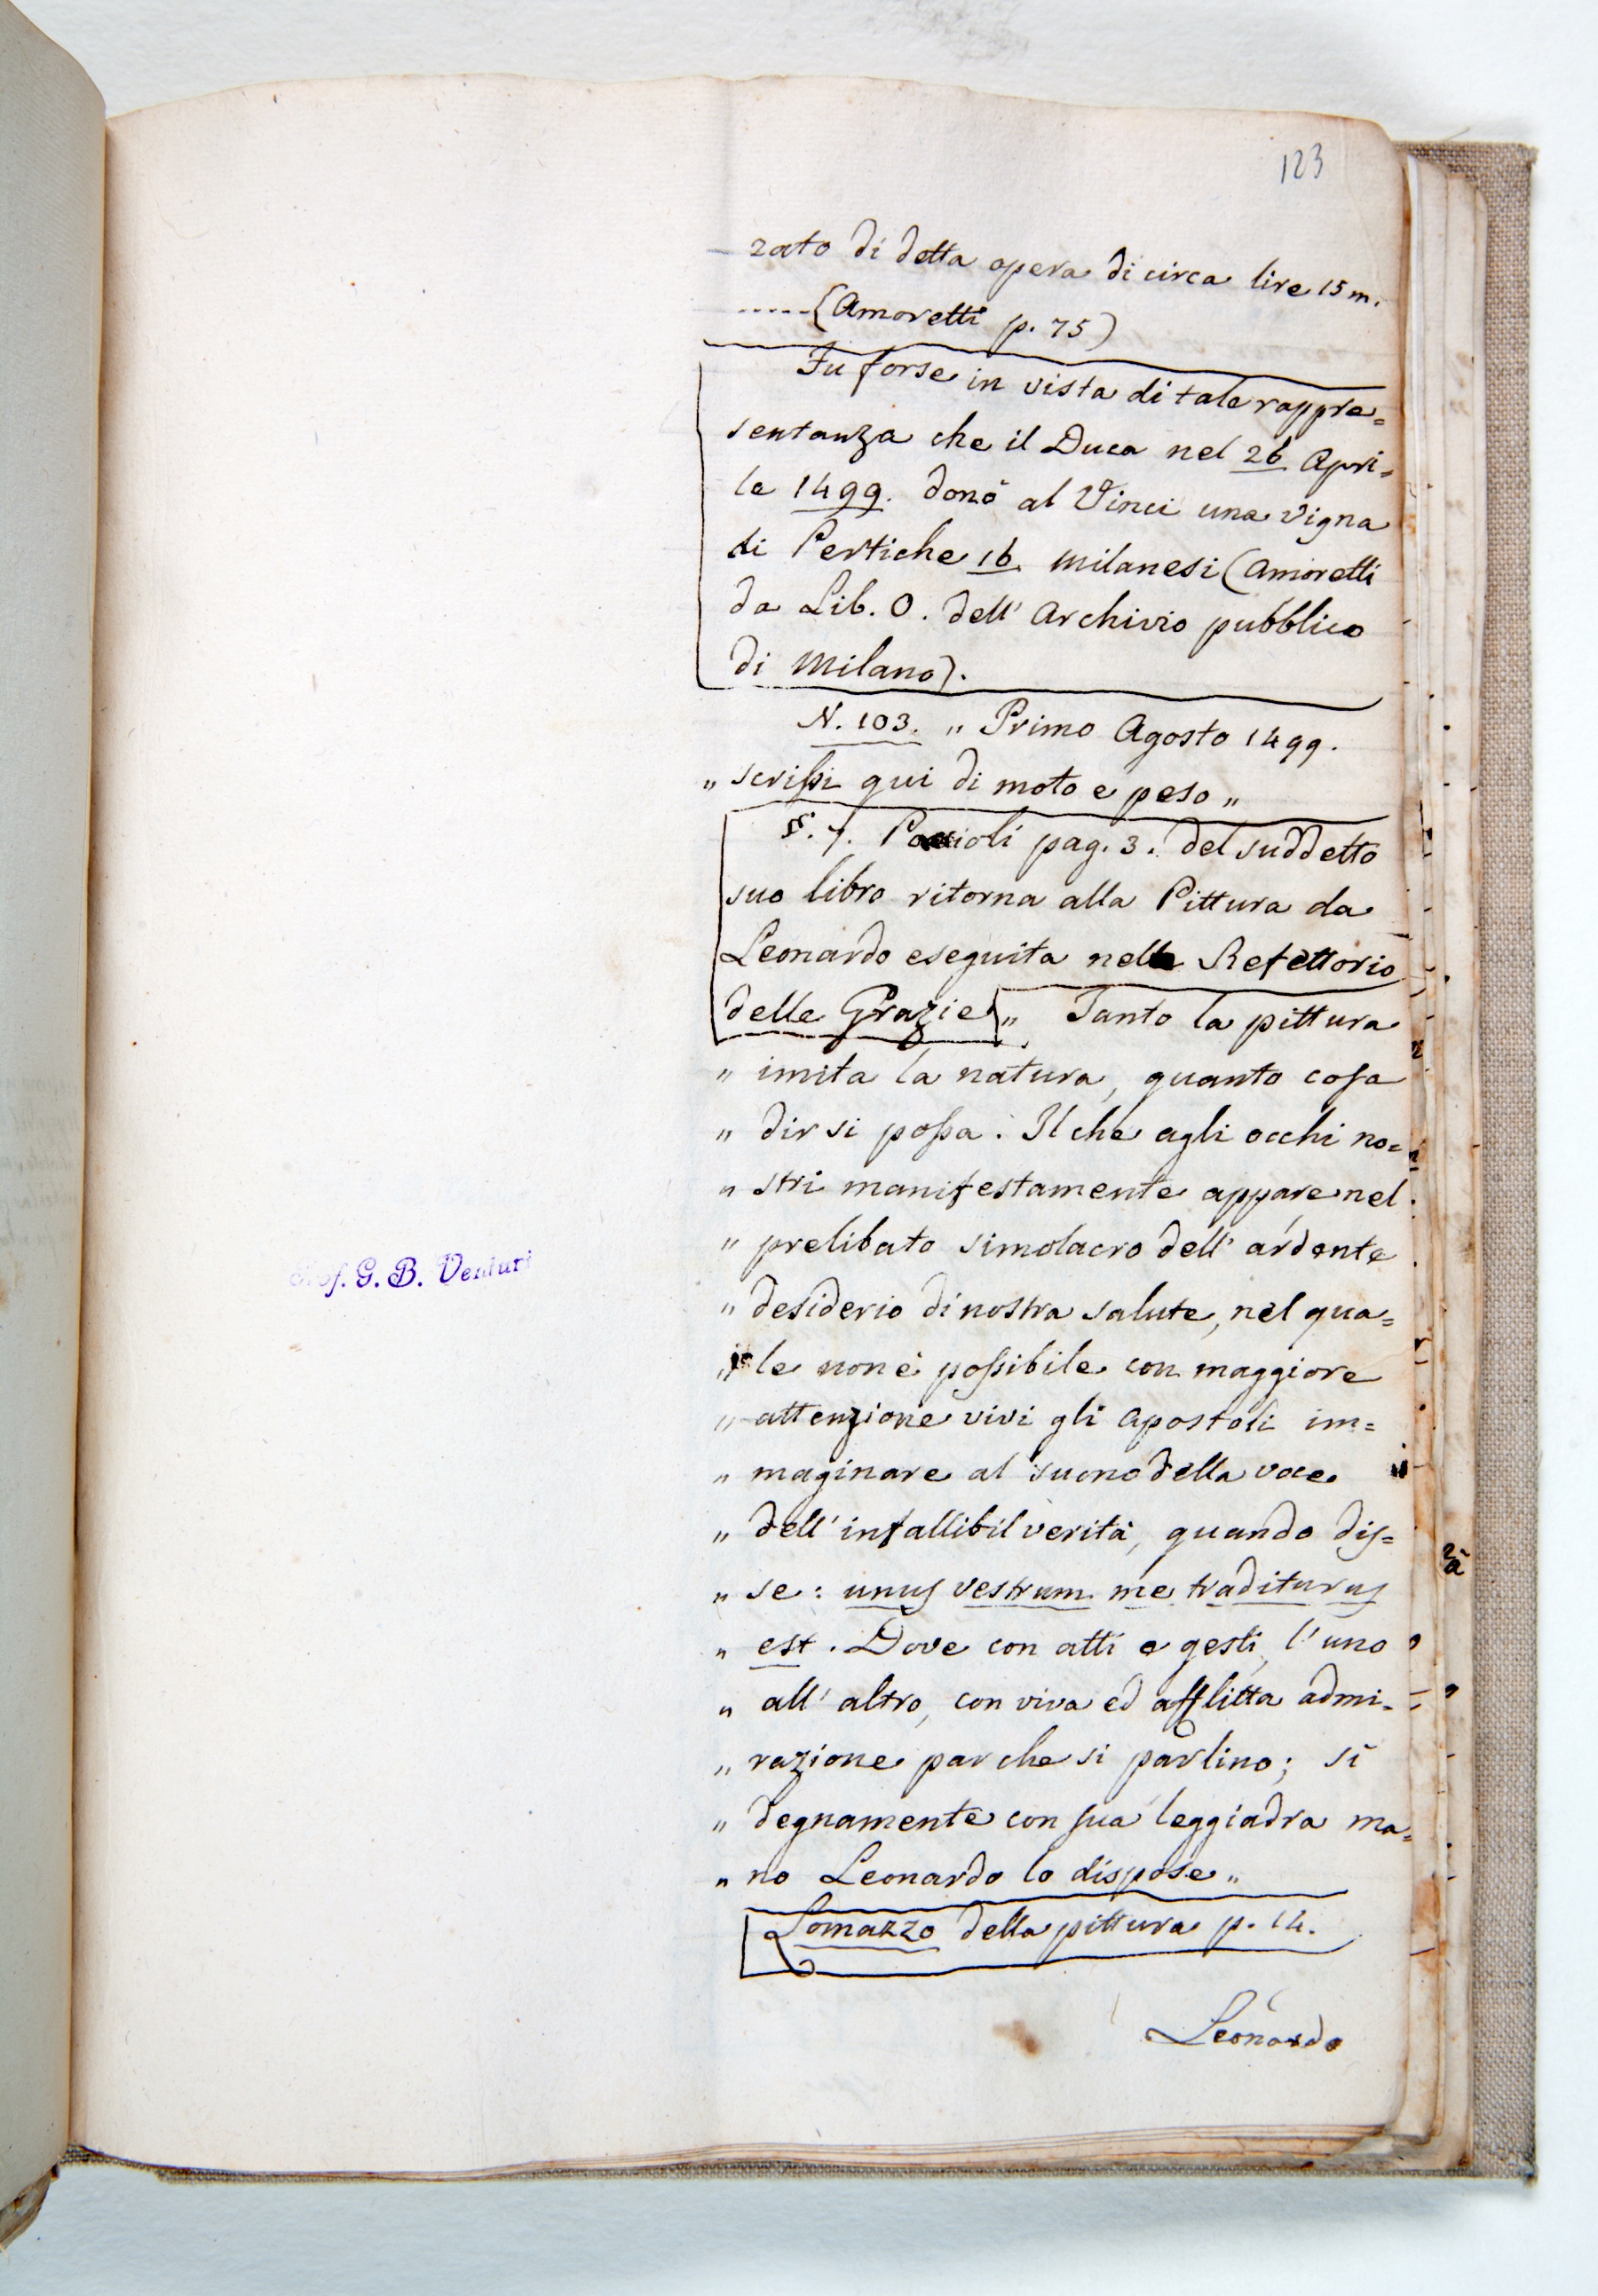 123
zato di detta opera di circa lire 15 m.
.....(Amoretti p. 75)
Fu forse in vista di tale rappre=
sentanza che il Duca nel 26 Apri=
le 1499. donò al Vinci una vigna
di Pertiche 16 milanesi (Amoretti
da Lib. O. dell' Archivio pubblico
di Milano).
N. 103. „ Primo Agosto 1499.
„ scrißi qui di moto e peso „
§. 7. Pacioli pag. 3. del suddetto
suo libro ritorna alla Pittura da
Leonardo eseguita nelle Refettorio
delle Grazie „ Tanto la pittura
„ imita la natura, quanto cosa
„ dir si poßa. Il che agli occhi no=
„ stri manifestamente appare nel
„ prelibato simolacro dell' ardente
„ desiderio di nostra salute, nel qua=
„ le non è poßibile con maggiore
„ attenzione vivi gli Apostoli im=
„ maginare al suono della voce
„ dell' infallibil verità, quando dis=
„ se: unus vestrum me traditurus
„ est. Dove con atti e gesti, l'uno
„ all' altro, con viva ed afflitta admi=
„ razione par che si parlino; sì
„ degnamente con sua leggiadra ma=
„ no Leonardo lo dispose „
Lomazzo della pittura p. 14.
Leonardo
Prof. G. B. Venturi